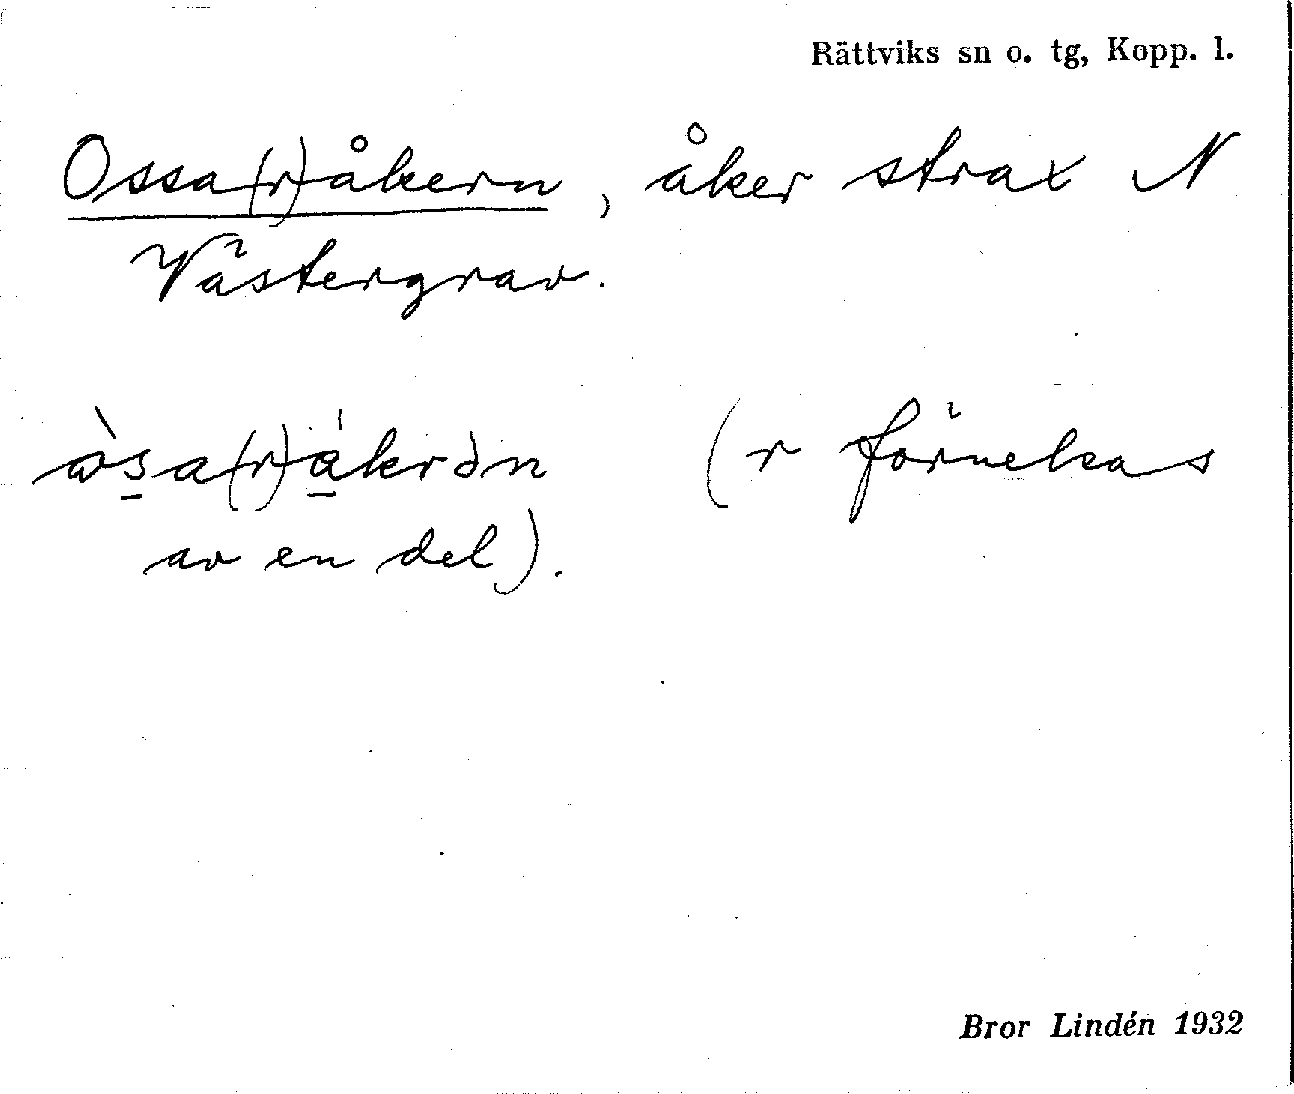 Rättviks sn o. tg, Kopp. l.
Ossa(r)åkern, åker strax N
Västergrav.
ɷ̀s̲a(r)á̲krən (r förnekas
av en del).
Bror Lindén 1932